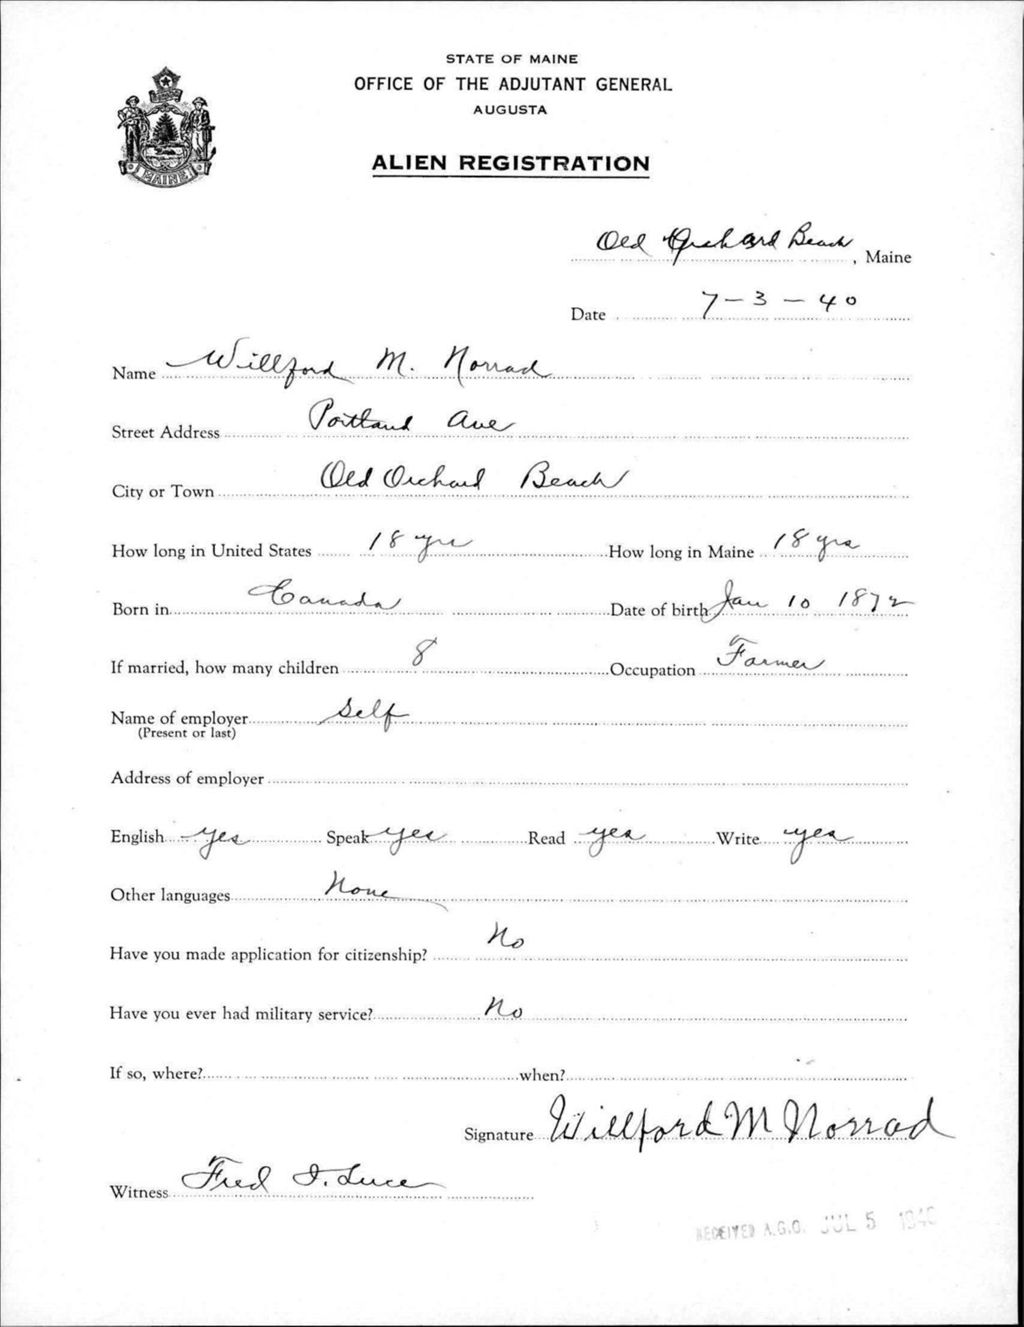 STATE OF MAINE
OFFICE OF THE ADJUTANT GENERAL
AUGUSTA
ALIEN REGISTRATION
MAINE
Old Orchard Beach, Maine
Date 7-3-40
Name Willford M. Norrad
Street Address Portland Ave
City or Town Old Orchard Beach
How long in United States 18 yrs How long in Maine 18 yrs
Born in Canada Date of birth Jan 10 1872
If married, how many children 8 Occupation Farmer
Name of employer Self
(Present or last)
Address of employer
English yes Speak yes Read yes Write yes
Other languages None
Have you made application for citizenship? No
Have you ever had military service? No
If so, where? when?
Signature Willford M Norrad
Witness Fred I. Luce
RECEIVED A.G.O. JUL 5 1940